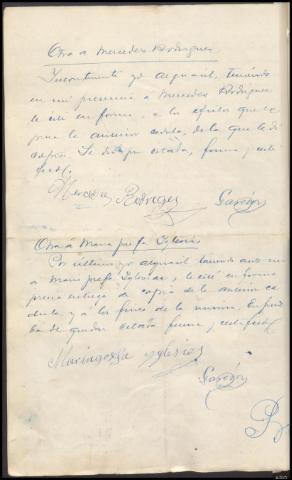 Otra a Mercedes Rodriguez
Incontinente yo alguacil, teniendo
en mi presencia a Mercedes Rodriguez
le cité en forma, a los efectos que
la anterior cédula, de la que le di
copia. Se dió por citada, firma, y certi
fico.
Mercedes Rodriguez Garzón
Otra a Maria Josefa Iglesias
Por ultimo yo alguacil teniendo ante mi
a Maria Josefa Iglesias, le cité en forma
previa entrega de copia de la anterior cé
dula y a los fines de la misma. En prue
ba de quedar citada firma, y certifico.
Mariajosefa yglesias
Garzón